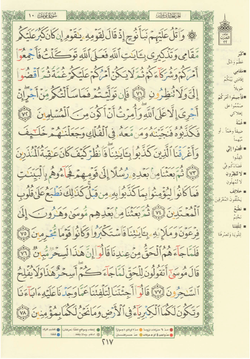 ۞ وَٱتْلُ عَلَيْهِمْ نَبَأَ نُوحٍ إِذْ قَالَ لِقَوْمِهِۦ يَـٰقَوْمِ إِن كَانَ كَبُرَ عَلَيْكُم
مَّقَامِى وَتَذْكِيرِى بِـَٔايَـٰتِ ٱللَّهِ فَعَلَى ٱللَّهِ تَوَكَّلْتُ فَأَجْمِعُوٓا۟
أَمْرَكُمْ وَشُرَكَآءَكُمْ ثُمَّ لَا يَكُنْ أَمْرُكُمْ عَلَيْكُمْ غُمَّةً ثُمَّ ٱقْضُوٓا۟
إِلَىَّ وَلَا تُنظِرُونِ ٧١ فَإِن تَوَلَّيْتُمْ فَمَا سَأَلْتُكُم مِّنْ أَجْرٍ إِنْ
أَجْرِىَ إِلَّا عَلَى ٱللَّهِ وَأُمِرْتُ أَنْ أَكُونَ مِنَ ٱلْمُسْلِمِينَ ٧٢
فَكَذَّبُوهُ فَنَجَّيْنَـٰهُ وَمَن مَّعَهُۥ فِى ٱلْفُلْكِ وَجَعَلْنَـٰهُمْ خَلَـٰٓئِفَ
وَأَغْرَقْنَا ٱلَّذِينَ كَذَّبُوا۟ بِـَٔايَـٰتِنَا فَٱنظُرْ كَيْفَ كَانَ عَـٰقِبَةُ ٱلْمُنذَرِينَ
٧٣ ثُمَّ بَعَثْنَا مِنۢ بَعْدِهِۦ رُسُلًا إِلَىٰ قَوْمِهِمْ فَجَآءُوهُم بِٱلْبَيِّنَـٰتِ
فَمَا كَانُوا۟ لِيُؤْمِنُوا۟ بِمَا كَذَّبُوا۟ بِهِۦ مِن قَبْلُ كَذَٰلِكَ نَطْبَعُ عَلَىٰ قُلُوبِ
ٱلْمُعْتَدِينَ ٧٤ ثُمَّ بَعَثْنَا مِنۢ بَعْدِهِم مُّوسَىٰ وَهَـٰرُونَ إِلَىٰ
فِرْعَوْنَ وَمَلَإِي۟هِۦ بِـَٔايَـٰتِنَا فَٱسْتَكْبَرُوا۟ وَكَانُوا۟ قَوْمًا مُّجْرِمِينَ ٧٥
فَلَمَّا جَآءَهُمُ ٱلْحَقُّ مِنْ عِندِنَا قَالُوٓا۟ إِنَّ هَـٰذَا لَسِحْرٌ مُّبِينٌ ٧٦
قَالَ مُوسَىٰٓ أَتَقُولُونَ لِلْحَقِّ لَمَّا جَآءَكُمْ أَسِحْرٌ هَـٰذَا وَلَا يُفْلِحُ
ٱلسَّـٰحِرُونَ ٧٧ قَالُوٓا۟ أَجِئْتَنَا لِتَلْفِتَنَا عَمَّا وَجَدْنَا عَلَيْهِ ءَابَآءَنَا
وَتَكُونَ لَكُمَا ٱلْكِبْرِيَآءُ فِى ٱلْأَرْضِ وَمَا نَحْنُ لَكُمَا بِمُؤْمِنِينَ ٧٨
٢١٧